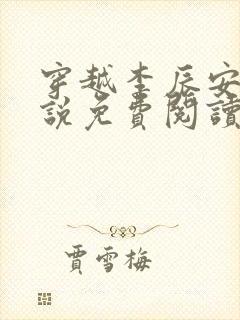 穿越李辰安
說免費閱讀
賈雪梅